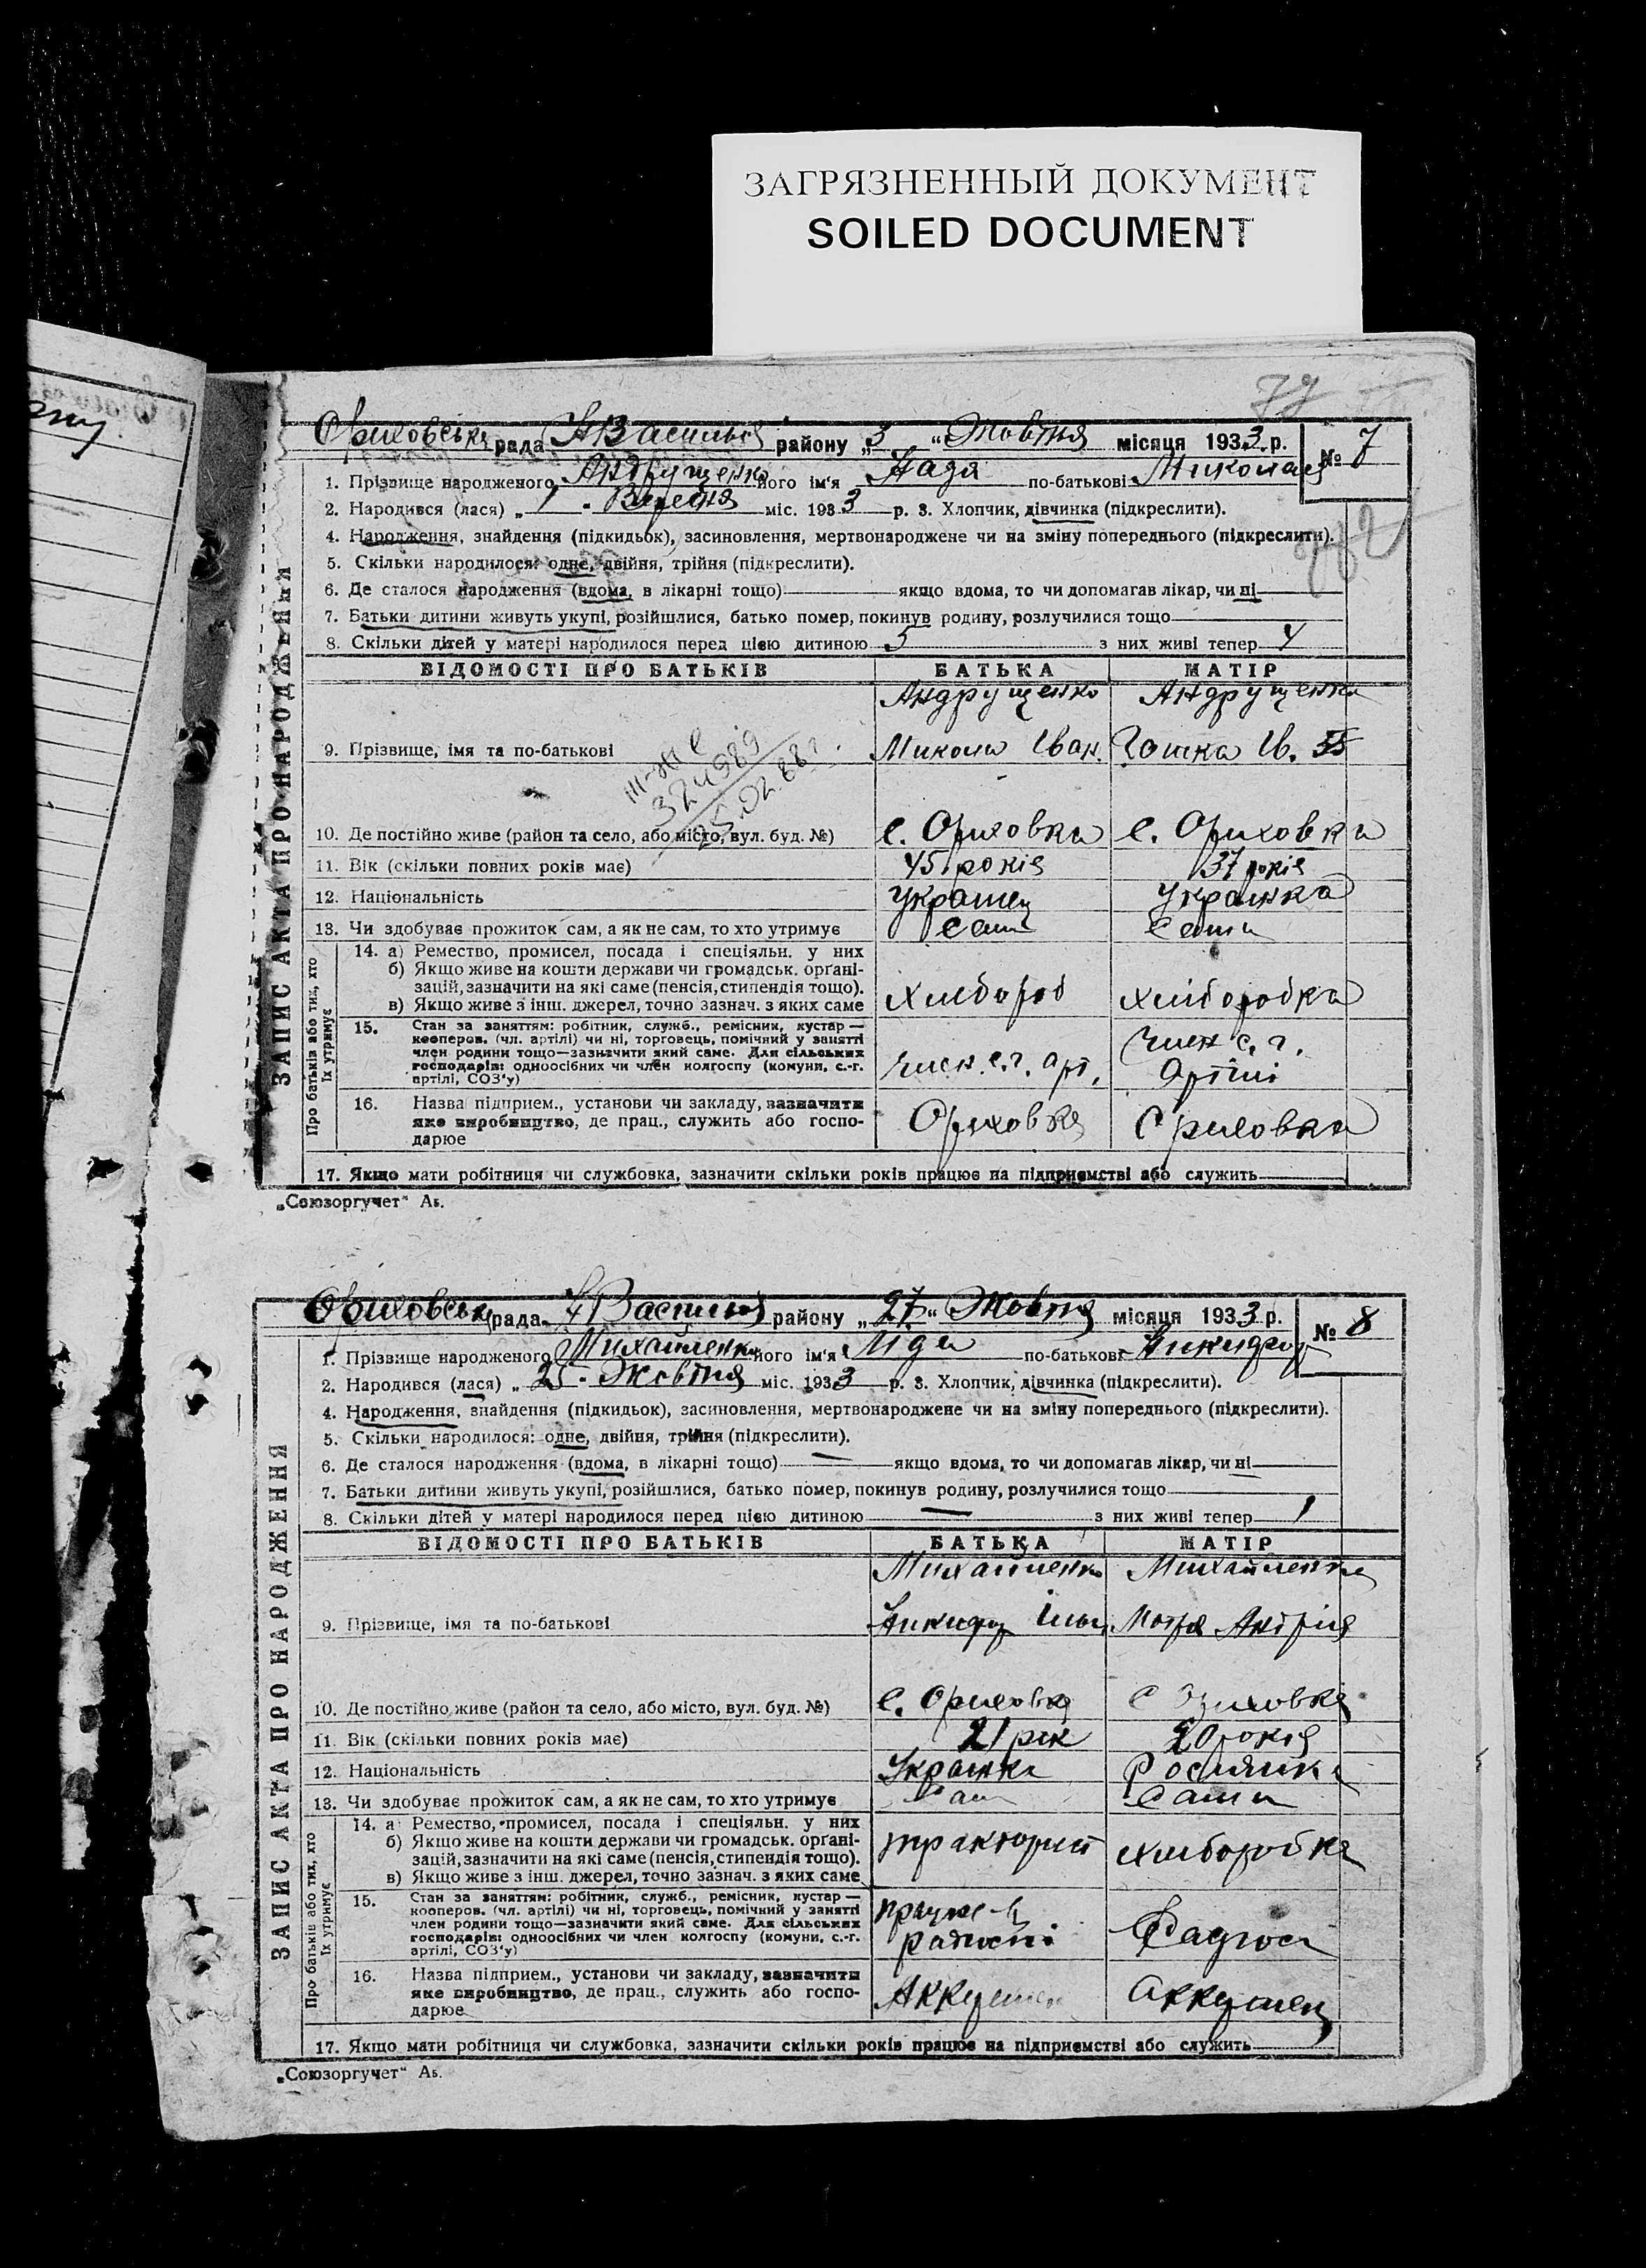 ЗАГРЯЗНЕННЫЙ ДОКУМЕНТ
SOILED DOCUMENT
77
Ориховська рада районy „3 “ Жовтня місяця 1933 р.
№ 7
1. Прізвище народженого Андрущенко його ім'я Надя по-батькові Миколаев
2. Народився (лася) „ 1 - Вересня міс. 1933 р. 3. Хлопчик, дівчинка (підкреслити).
4. Народження, знайдення (підкидьок), засиновлення, мертвонароджене чи на зміну попереднього (підкреслити).
5. Скільки народилося: одне, двійня, трійня (підкреслити).
6. Де сталося народження (вдома, в лікарні тощо) якщо вдома, то чи допомагав лікар, чи ні
7. Батьки дитини живуть укупі, розійшлися, батько помер, покинув родину, розлучилися тощо
8. Скільки дітей у матері народилося перед цією дитиною 5 з них живі тепер 4
ВІДОМОСТІ ПРО БАТЬКІВ БАТЬКА МАТІР
Андрущенко Андрущенко
9. Прізвище, імя та по-батькові Микола Іван. Ів.
324989
10. Де постійно живе (район та село, або місто, вул. буд. №) с. Ориховка с. Ориховка
11. Вік (скільки повних років має) 45 років 37 років
12. Національність Українец Українка
13. Чи здобуває прожиток сам, а як не сам, то хто утримує Сам Сама
14. а) Ремество, промисел, посада і спеціяльн. у них
б) Якщо живе на кошти держави чи громадськ. орґані-
зацій, зазначити на які саме (пенсія, стипендія тощо).
в) Якщо живе з інш. джерел, точно зазнач. з яких саме
хлібороб хліборобка
15. Стан за заняттям: робітник, служб., ремісник, кустар —
кооперов. (чл. артілі) чи ні, торговець, помічний у занятті
член родини тощо—зазначити який саме. Для сільських
господарів: одноосібних чи член колгоспу (комуни, с.-г.
артілі, СОЗ'у)
член. с. г. арт. член с. г.
Артілі
16. Назва підприєм., установи чи закладу, зазначити
яке виробництво, де прац., служить або госпо-
дарює
Ориховка Ориховка
17. Якщо мати робітниця чи службовка, зазначити скільки років працює на підприємстві або служить
ЗАПИС АКТА ПРО НАРОДЖЕННЯ
Про батьків або тих, хто їх утримує
„Союзоргучет“ Аб.
Ориховська рада району „27“ Жовтня місяця 1933 р.
№ 8
1. Прізвище народженого Михайленко його ім'я Ліда по-батькові Никифор
2. Народився (лася) „ 25 - Жовтня міс. 1933 р. 3. Хлопчик, дівчинка (підкреслити).
4. Народження, знайдення (підкидьок), засиновлення, мертвонароджене чи на зміну попереднього (підкреслити).
5. Скільки народилося: одне, двійня, трійня (підкреслити).
6. Де сталося народження (вдома, в лікарні тощо) якщо вдома, то чи допомагав лікар, чи ні
7. Батьки дитини живуть укупі, розійшлися, батько помер, покинув родину, розлучилися тощо
8. Скільки дітей у матері народилося перед цією дитиною — з них живі тепер 1
ВІДОМОСТІ ПРО БАТЬКІВ БАТЬКА МАТІР
Михайленко Михайленко
9. Прізвище, імя та по-батькові Никифор Ільч Мотря
10. Де постійно живе (район та село, або місто, вул. буд. №) с. Ориховка с Ориховка
11. Вік (скільки повних років має) 21 рік 20 років
12. Національність Росіянка
13. Чи здобуває прожиток сам, а як не сам, то хто утримує Сам Сама
14. а) Ремество, промисел, посада і спеціяльн. у них
б) Якщо живе на кошти держави чи громадськ. орґані-
зацій, зазначити на які саме (пенсія, стипендія тощо).
в) Якщо живе з інш. джерел, точно зазнач. з яких саме
тракторист хліборобка
15. Стан за заняттям: робітник, служб., ремісник, кустар —
кооперов. (чл. артілі) чи ні, торговець, помічний у занятті
член родини тощо—зазначити який саме. Для сільських
господарів: одноосібних чи член колгоспу (комуни, с.-г.
артілі, СОЗ'у)
16. Назва підприєм., установи чи закладу, зазначити
яке виробництво, де прац., служить або госпо-
дарює
17. Якщо мати робітниця чи службовка, зазначити скільки років працює на підприємстві або служить
ЗАПИС АКТА ПРО НАРОДЖЕННЯ
Про батьків або тих, хто їх утримує
„Союзоргучет“ Аб.